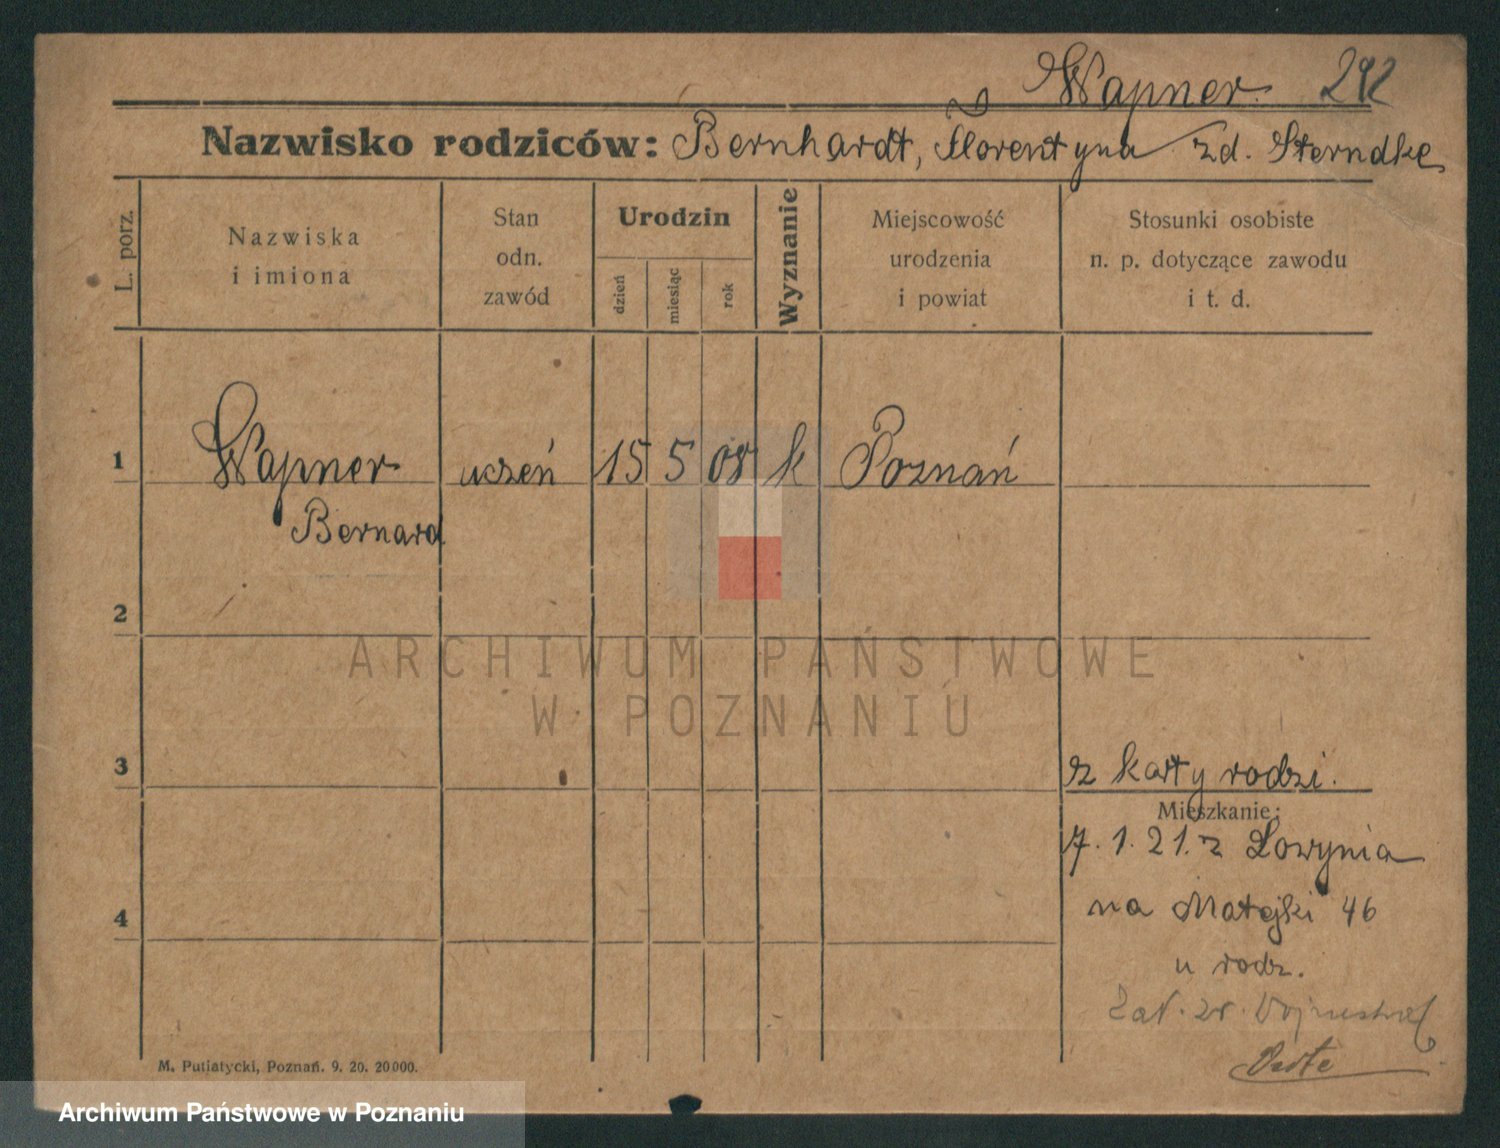 Wapner. 292
Nazwisko rodziców: Bernhardt, Florentyna zd. Sterndke
L. porz.
Nazwiska
i imiona
Stan
odn.
zawód
Urodzin
dzień
miesiąc
rok
Wyznanie
Miejscowość
urodzenia
i powiat
Stosunki osobiste
n. p. dotyczące zawodu
i t. d.
1 Wapner uczeń 15 5 08 k Poznań
Bernard
2
ARCHIWUM PAŃSTWOWE
W POZNANIU
3 z karty rodzi.
Mieszkanie:
7. 1. 21. z Lowynia
4 na Matejki 46
u rodz.
M. Putiatycki, Poznań. 9. 20. 20 000.
Archiwum Państwowe w Poznaniu